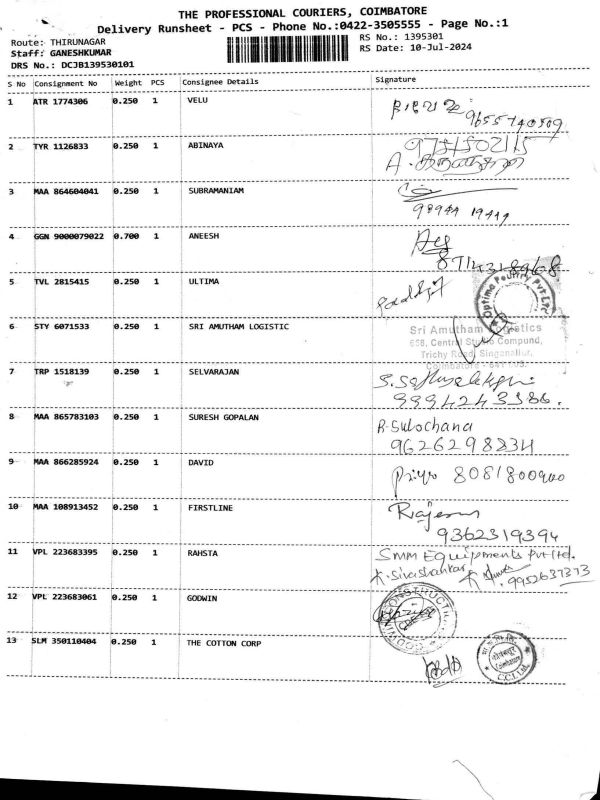 THE PROFESSIONAL COURIERS, COIMBATORE
Delivery Runsheet - PCS - Phone No.:0422-3505555 - Page No.:1
Route: THIRUNAGAR
Staff: GANESHKUMAR
DRS No.: DCJB139530101
RS No.: 1395301
RS Date: 10-Jul-2024
S No Consignment No Weight PCS Consignee Details Signature
1 ATR 1774306 0.250 1 VELU
9655740509
2 TYR 1126833 0.250 1 ABINAYA
3 MAA 864604041 0.250 1 SUBRAMANIAM
4 GGN 9000079022 0.700 1 ANEESH
8714318968
5 TVL 2815415 0.250 1 ULTIMA
Optima Poultry Pvt Ltd
6 STY 6071533 0.250 1 SRI AMUTHAM LOGISTIC
Sri Amutham Logistics
658, Central Studio Compund,
Trichy Road, Singanallur,
7 TRP 1518139 0.250 1 SELVARAJAN
9994243386.
8 MAA 865783103 0.250 1 SURESH GOPALAN
R. Sulochana
9626298834
9 MAA 866285924 0.250 1 DAVID
Priya 8081800900
10 MAA 108913452 0.250 1 FIRSTLINE
9362319394
11 VPL 223683395 0.250 1 RAHSTA
SMM Equipments Pvt Ltd.
K. Sivashankar 9952637373
12 VPL 223683061 0.250 1 GODWIN
GODWIN CONSTRUCTION
13 SLM 350110404 0.250 1 THE COTTON CORP
C.C.I. Ltd.